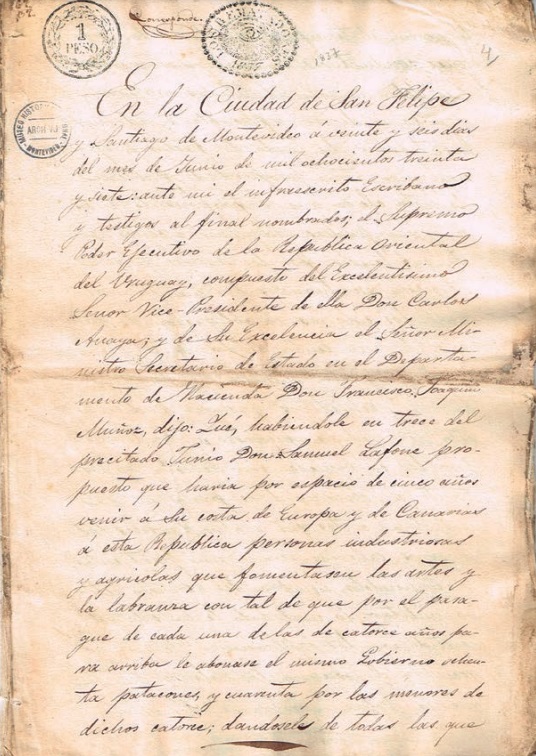 1
PESO
Corresponde
1837
4
En la Ciudad de San Felipe
y Santiago de Montevideo á veinte y seis dias
del mes de Junio de mil ochocientos treinta
y siete: ante mi el infraescrito Escribano
y testigos al final nombrados; el Supremo
Poder Ejecutivo de la Republica Oriental
del Uruguay, compuesto del Excelentisimo
Senor Vice-Presidente de ella Don Carlos
Anaya; y de Su Excelencia el Señor Mi-
nistro Secretario de Estado en el Departa-
mento de Hacienda Don Francisco Joaquin
Muñoz, dijo: Qué, habiendole en trece del
precitado Junio Don Samuel Lafone pro-
puesto que haria por espacio de cinco años
venir á su costa de Europa y de Canarias
á esta Republica personas industriosas
y agricolas que fomentasen las artes y
la labranza con tal de que por el pasa-
ge de cada una de las de catorce años pa-
ra arriba le abonase el mismo Gobierno ochen-
ta patacones, y cuarenta por las menores de
dichos catorce; dandosele de todas las que